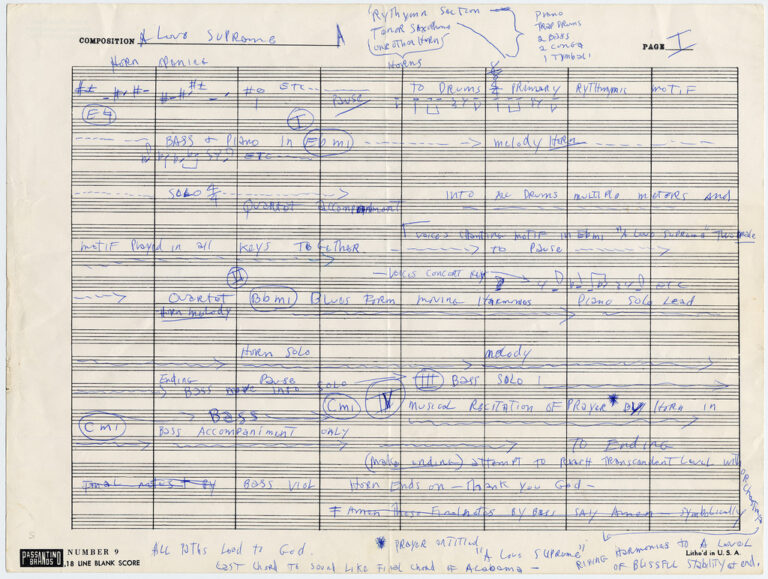 COMPOSITION A Love Supreme
Rythymn Section —
Tenor Saxophone
one other Horn
Horns
piano
trap drums
2 Bass
2 conga
1 Tymbali
PAGE I
Horn opening
ETC
Pause
TO DRUMS & PRIMARY RYTHMMIC MOTIF
E4
I
BASS & PIANO IN Ebmi
melody Horn
ETC
SOLO 4/4
Quartet accompaniment
INTO ALL DRUMS MULTIPLE METERS AND
VOICES CHANTING MOTIF IN Ebmi "A LOVE SUPREME"
motif Played in all KEYS TOGETHER.
TO PAUSE
VOICES CONCERT KEY
ETC
II
Quartet Bbmi BLUES FORM MOVING HARMONIES PIANO SOLO LEAD
Horn melody
HORN SOLO
melody
Ending
Pause
BASS move INTO SOLO
III BASS SOLO 1
Cmi IV MUSICAL RECITATION OF PRAYER * BY HORN IN
BASS
Cmi BASS ACCOMPANIMENT ONLY
TO ENDING
(make ending) attempt TO REACH TRANSCENDENT Level with
ORCHESTRA
Final notes + BY BASS VIOL HORN ENDS ON — THANK YOU GOD —
Final notes BY BASS SAY Amen — Symbolically
PASSANTINO BRANDS
NUMBER 9
18 LINE BLANK SCORE
Litho'd in U. S. A.
ALL PATHS LEAD TO GOD.
* PRAYER ENTITLED
"A LOVE SUPREME"
LAST CHORD TO SOUND LIKE FINAL CHORD OF ALABAMA —
RISING HARMONIES TO A LEVEL
OF BLISSFUL STABILITY at end.